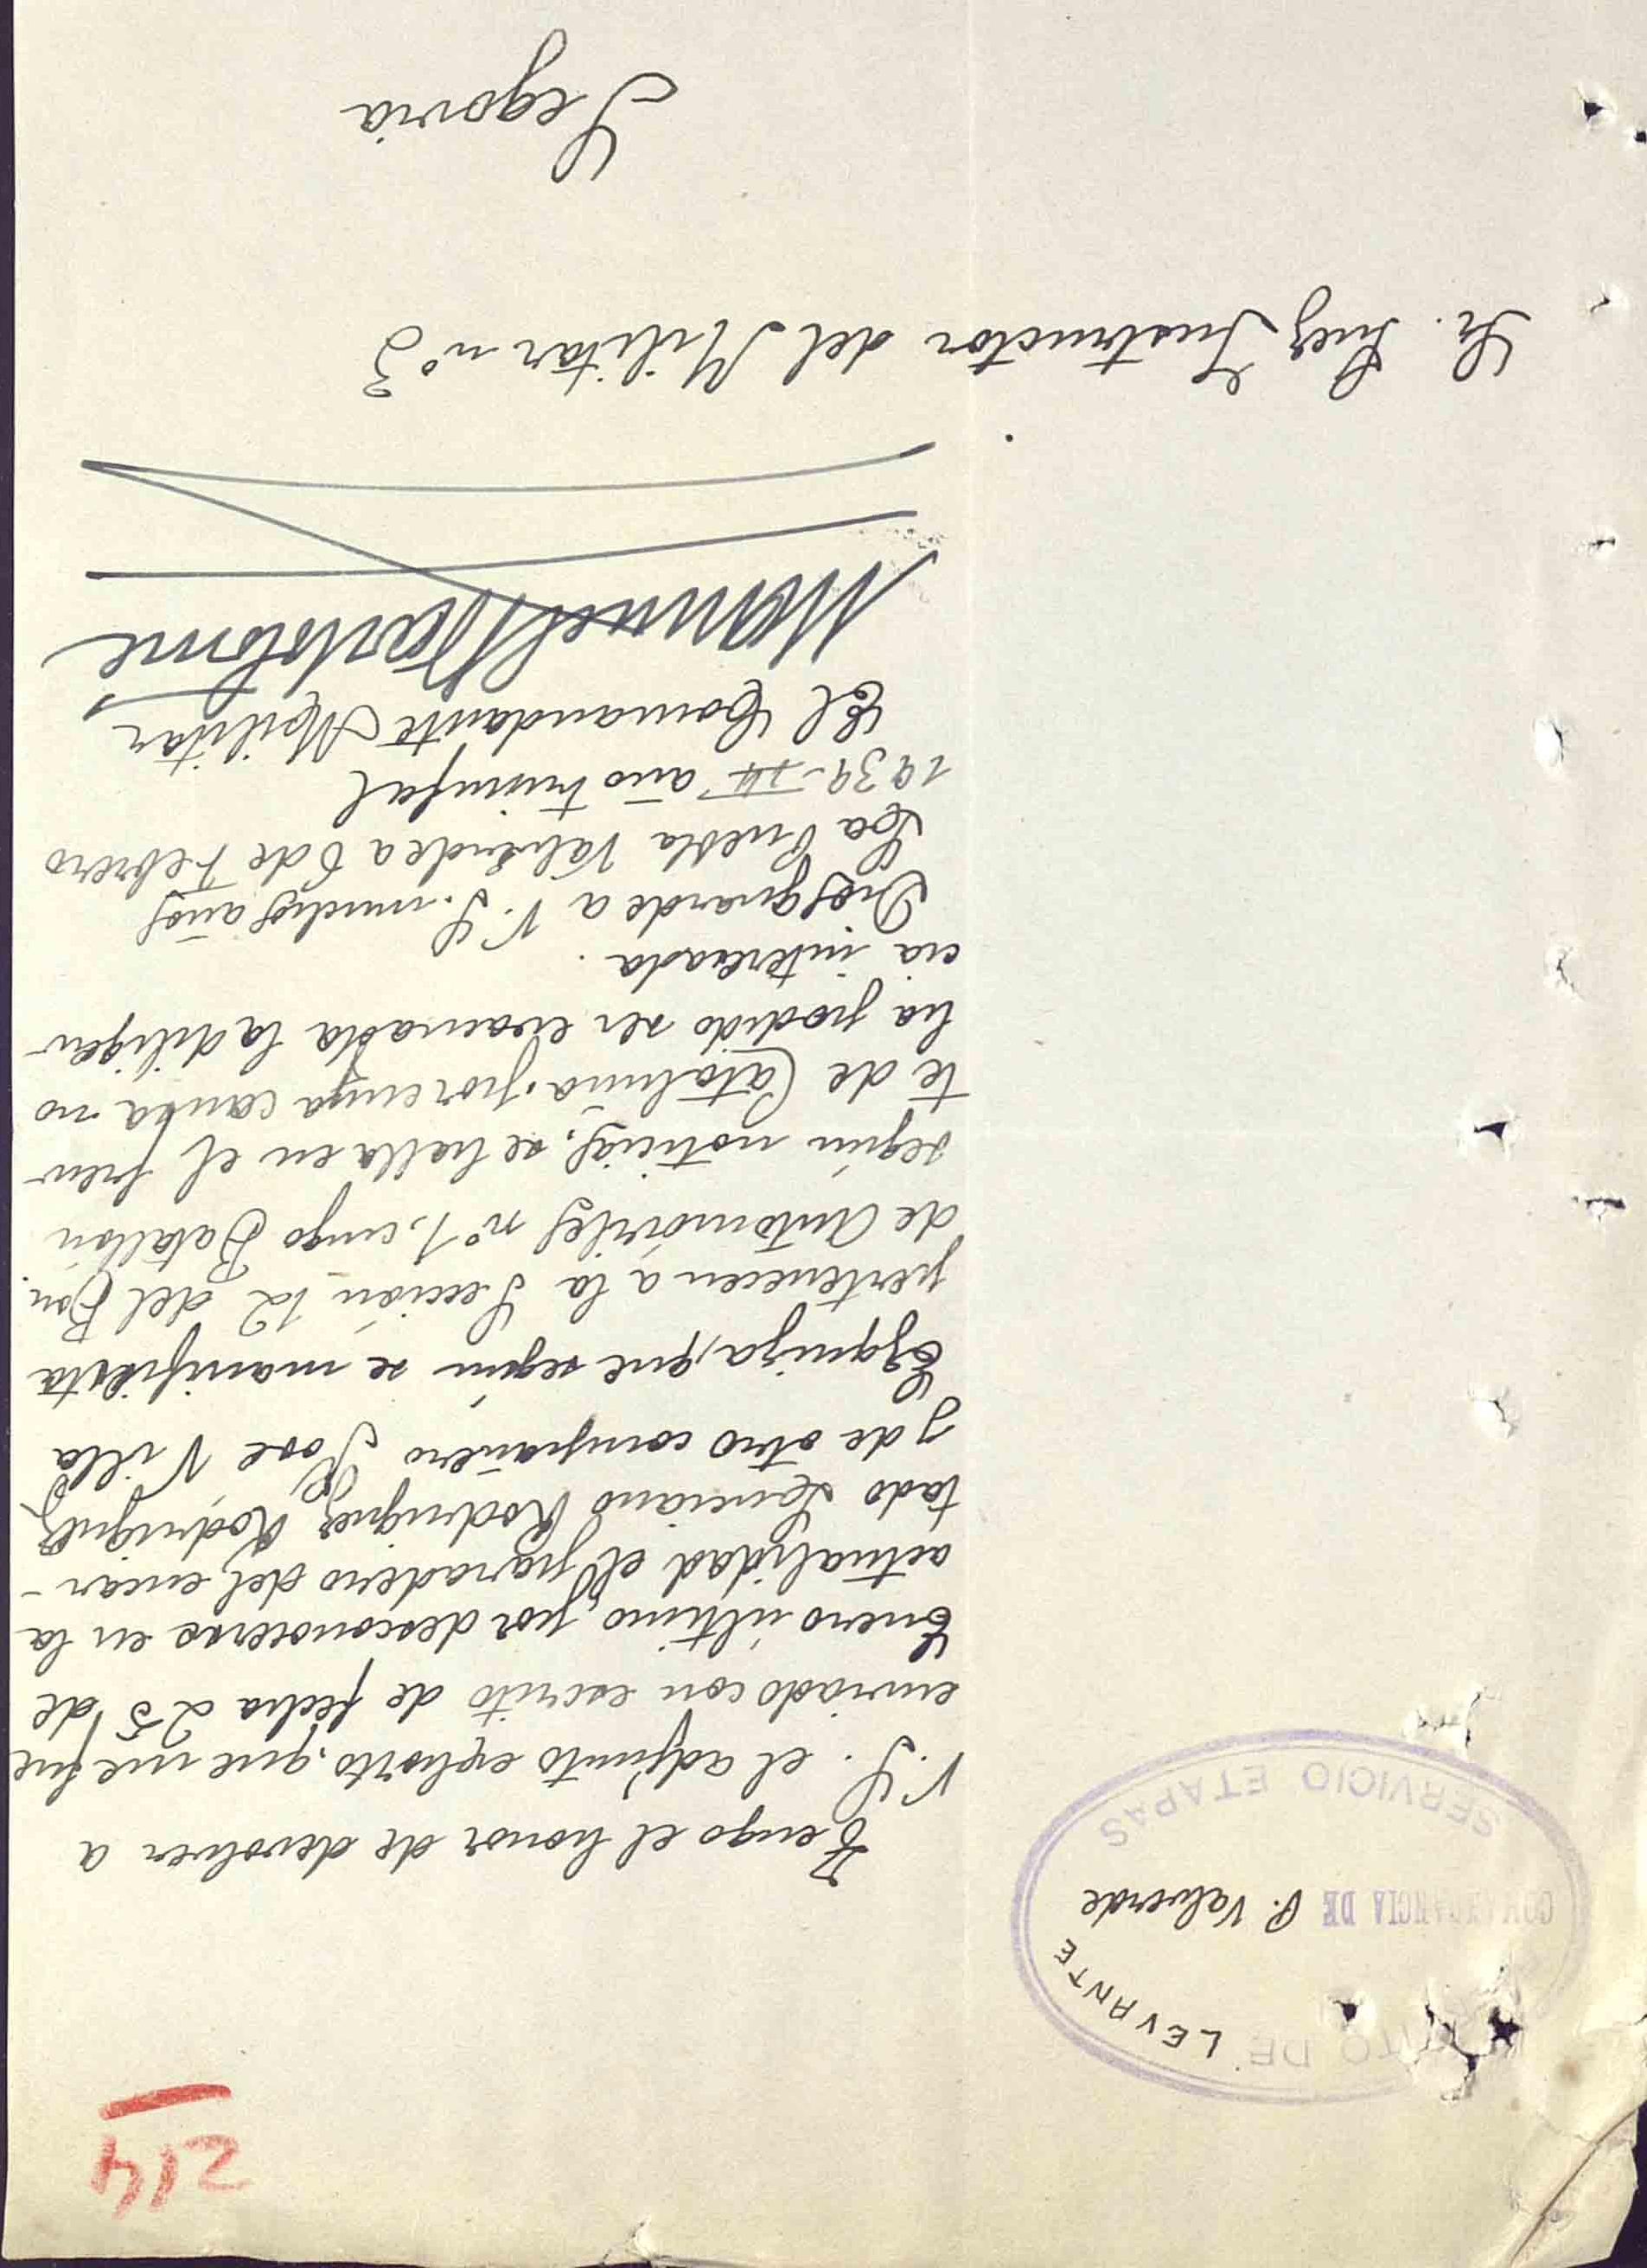 214
TO DE LEVANTE
COMANDANCIA DE P. Valverde
SERVICIO ETAPAS
Tengo el honor de devolver a
V.S. el adjunto exhorto, que me fue
enviado con escrito de fecha 25 de
Enero último, por desconocerse en la
actualidad el paradero del encar-
tado Lauriano Rodriguez Rodriguez
y de otro compañero Jose Villa
Ezquiza, que según se manifiesta
pertenecen a la Sección 12 del Bon.
de Automóviles nº 1, cuyo Batallón
según noticias, se halla en el fren-
te de Cataluña, por cuya causa no
ha podido ser evacuada la diligen-
cia interesada.
Dios guarde a V.S. muchos años
La Puebla Valverde a 6 de Febrero
1939 - III año triunfal
El Comandante Militar
Manuel Bartolome
Sr. Juez Instructor del Militar nº 3
Segovia